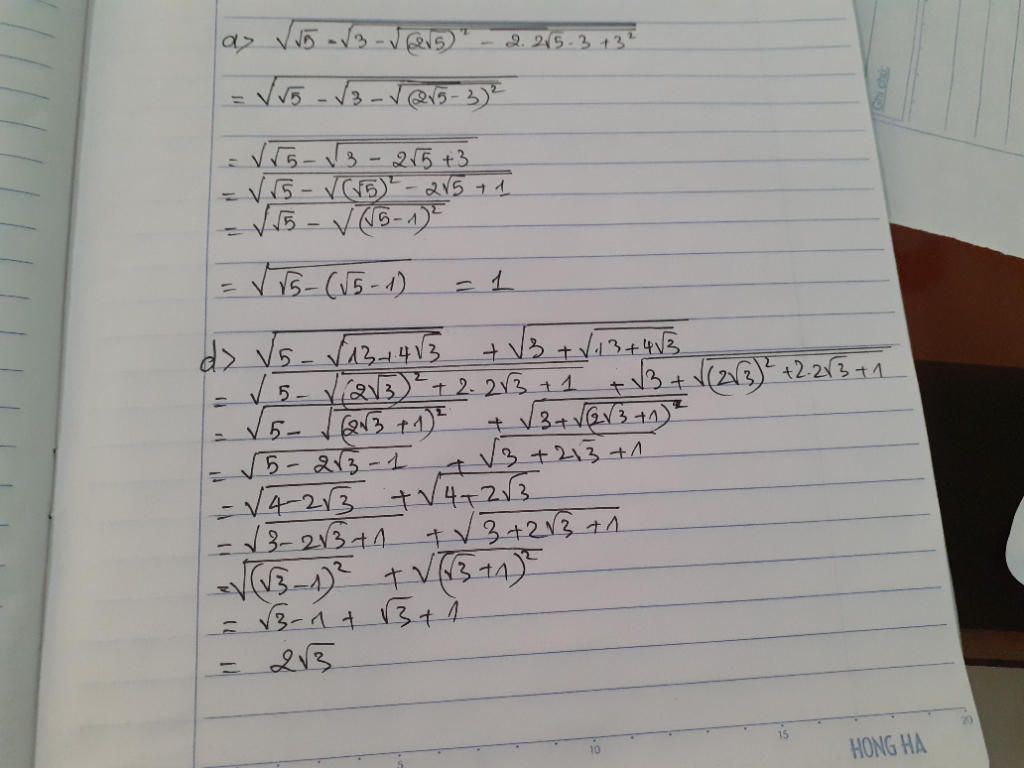 a> √(√5 - √(3 - √((2√5)² - 2. 2√5 . 3 + 3²)))
= √(√5 - √(3 - √((2√5 - 3)²)))
= √(√5 - √(3 - 2√5 + 3))
= √(√5 - √((√5)² - 2√5 + 1))
= √(√5 - √((√5 - 1)²))
= √(√5 - (√5 - 1)) = 1
d> √(5 - √(13 + 4√3)) + √(3 + √(13 + 4√3))
= √(5 - √((2√3)² + 2. 2√3 + 1)) + √(3 + √((2√3)² + 2. 2√3 + 1))
= √(5 - √((2√3 + 1)²)) + √(3 + √((2√3 + 1)²))
= √(5 - 2√3 - 1) + √(3 + 2√3 + 1)
= √(4 - 2√3) + √(4 + 2√3)
= √(3 - 2√3 + 1) + √(3 + 2√3 + 1)
= √((√3 - 1)²) + √((√3 + 1)²)
= √3 - 1 + √3 + 1
= 2√3
5 10 15 20
HONG HA